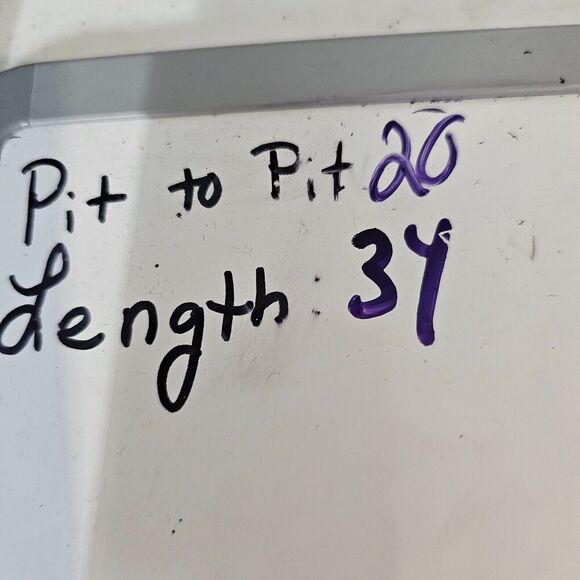 Pit to Pit 20
Length: 34